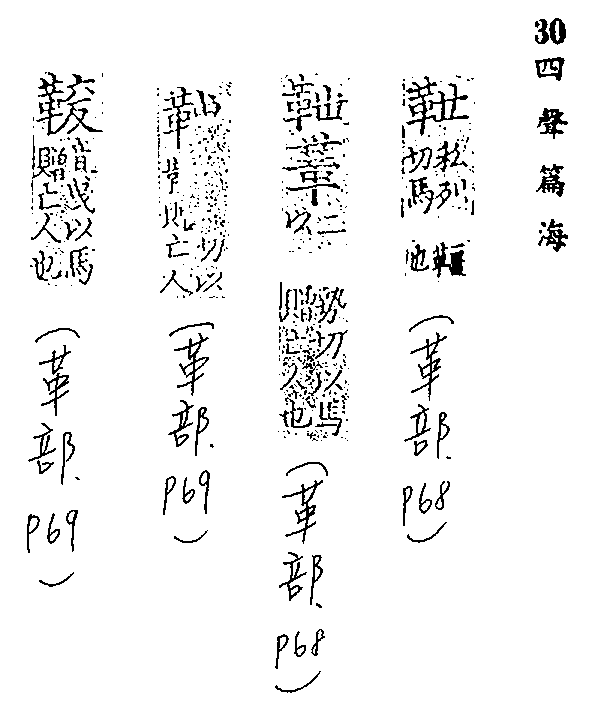 30 四聲篇海
靾 私列切馬韁也 (革部. P68)
二以 勢切以馬贈亡人也 (革部. P68)
切以 亡人 (革部. P69)
音曳以馬贈亡人也 (革部. P69)